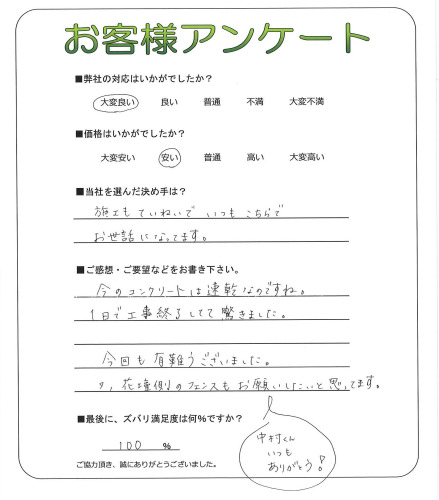 お客様アンケート
■弊社の対応はいかがでしたか？
大変良い 良い 普通 不満 大変不満
■価格はいかがでしたか？
大変安い 安い 普通 高い 大変高い
■当社を選んだ決め手は？
施工もていねいで いつもこちらで
お世話になってます。
■ご感想・ご要望などをお書き下さい。
今のコンクリートは速乾なのですね。
1日で工事終了してて驚きました。
今回も有難うございました。
花壇側のフェンスもお願いしたいと思ってます。
■最後に、ズバリ満足度は何％ですか？
100 ％
ご協力頂き、誠にありがとうございました。
中村くん
いつも
ありがとう！